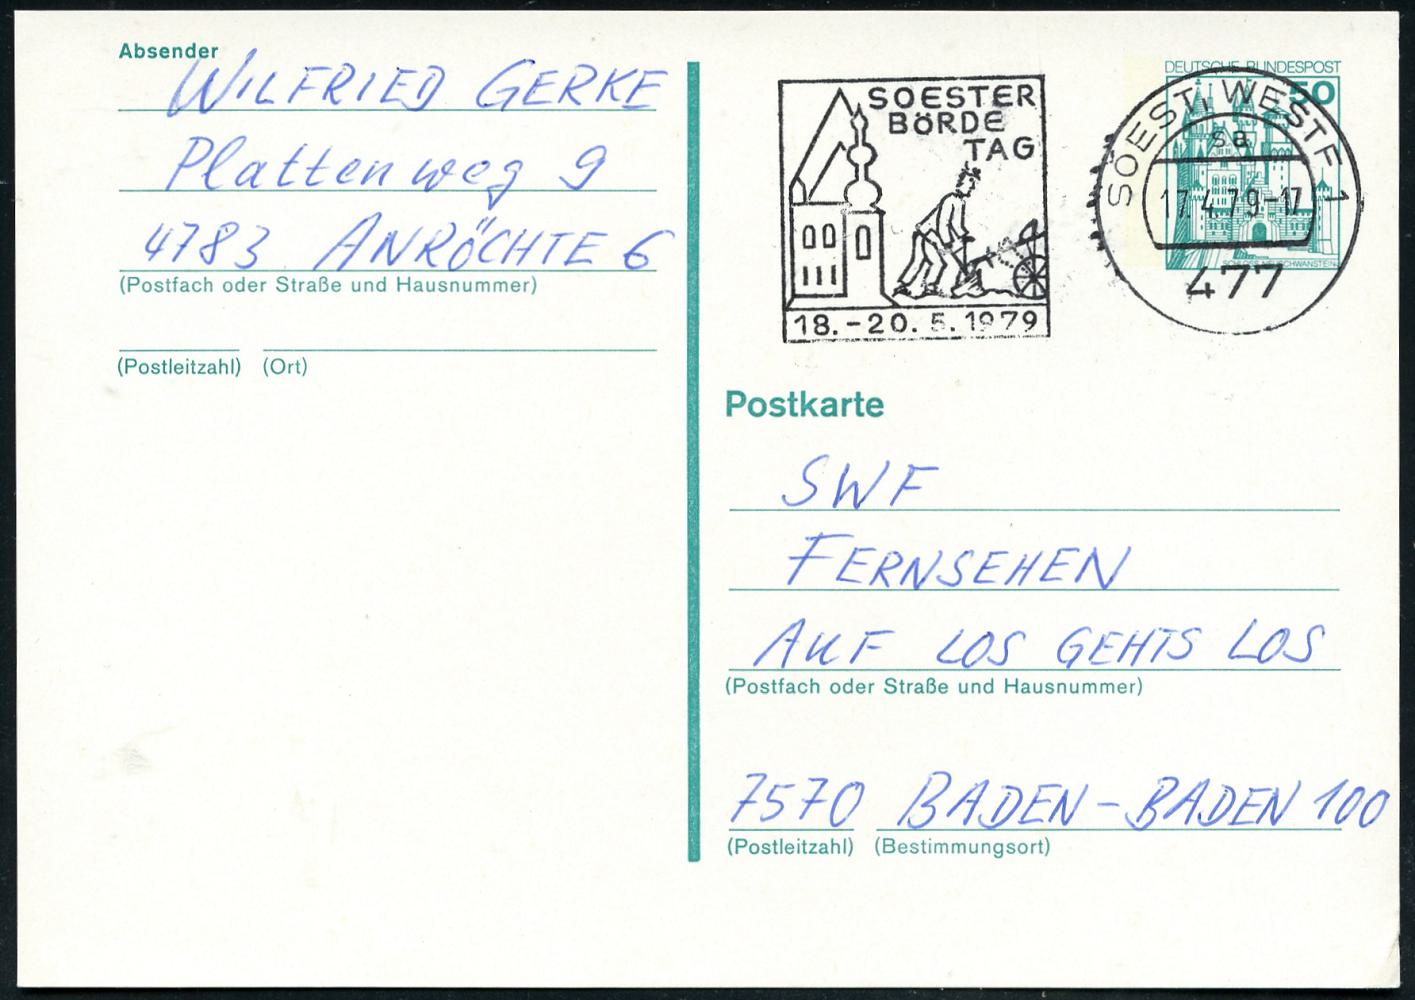 Absender
WILFRIED GERKE
Plattenweg 9
4783 ANRÖCHTE 6
(Postfach oder Straße und Hausnummer)
(Postleitzahl) (Ort)
SOESTER
BÖRDE
TAG
18.-20.5.1979
DEUTSCHE BUNDESPOST
50
SCHLOSS NEUSCHWANSTEIN
SOEST, WESTF 1
sa
17.4.79-17
477
Postkarte
SWF
FERNSEHEN
AUF LOS GEHTS LOS
(Postfach oder Straße und Hausnummer)
7570 BADEN-BADEN 100
(Postleitzahl) (Bestimmungsort)